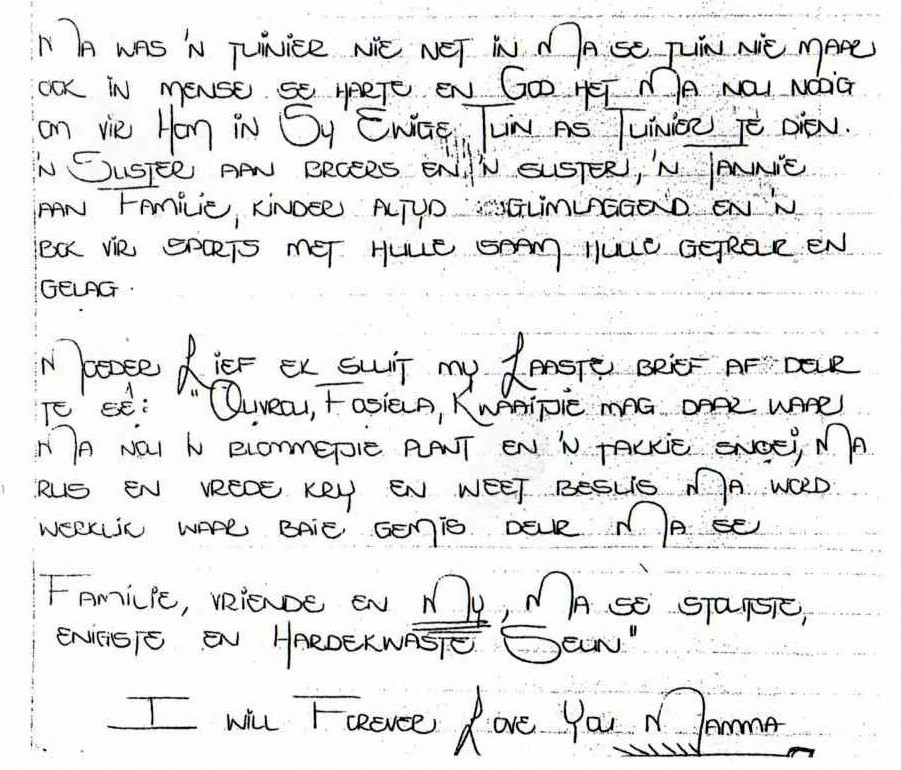 MA WAS 'N TUINIER NIE NET IN MA SE TUIN NIE MAAR
OOK IN MENSE SE HARTE EN GOD HET MA NOU NODIG
OM VIR HOM IN SY ENIGE TUIN AS TUINIER TE DIEN.
'N SUSTER AAN BROERS EN 'N SUSTER, 'N TANNIE
AAN FAMILIE, KINDER ALTYD GLIMLAGGEND EN 'N
BOK VIR SPORTS MET HULLE SAAM HULLE GETREUR EN
GELAG.
MOEDER LIEF EK SLUIT MY LAASTE BRIEF AF DEUR
TE SÊ: "OUVROU, FOSIELA, KWAAITJIE MAG DAAR WAAR
MA NOU 'N BLOMMETJIE PLANT EN 'N TAKKIE SNOEI, MA
RUS EN VREDE KRY EN WEET BESLIS MA WORD
WERKLIK WAAR BAIE GEMIS DEUR MA SE
FAMILIE, VRIENDE EN MY, MA SE STOUTSTE,
ENIGSTE EN HARDEKWASTE SEUN"
I WILL FOREVER LOVE YOU MAMMA